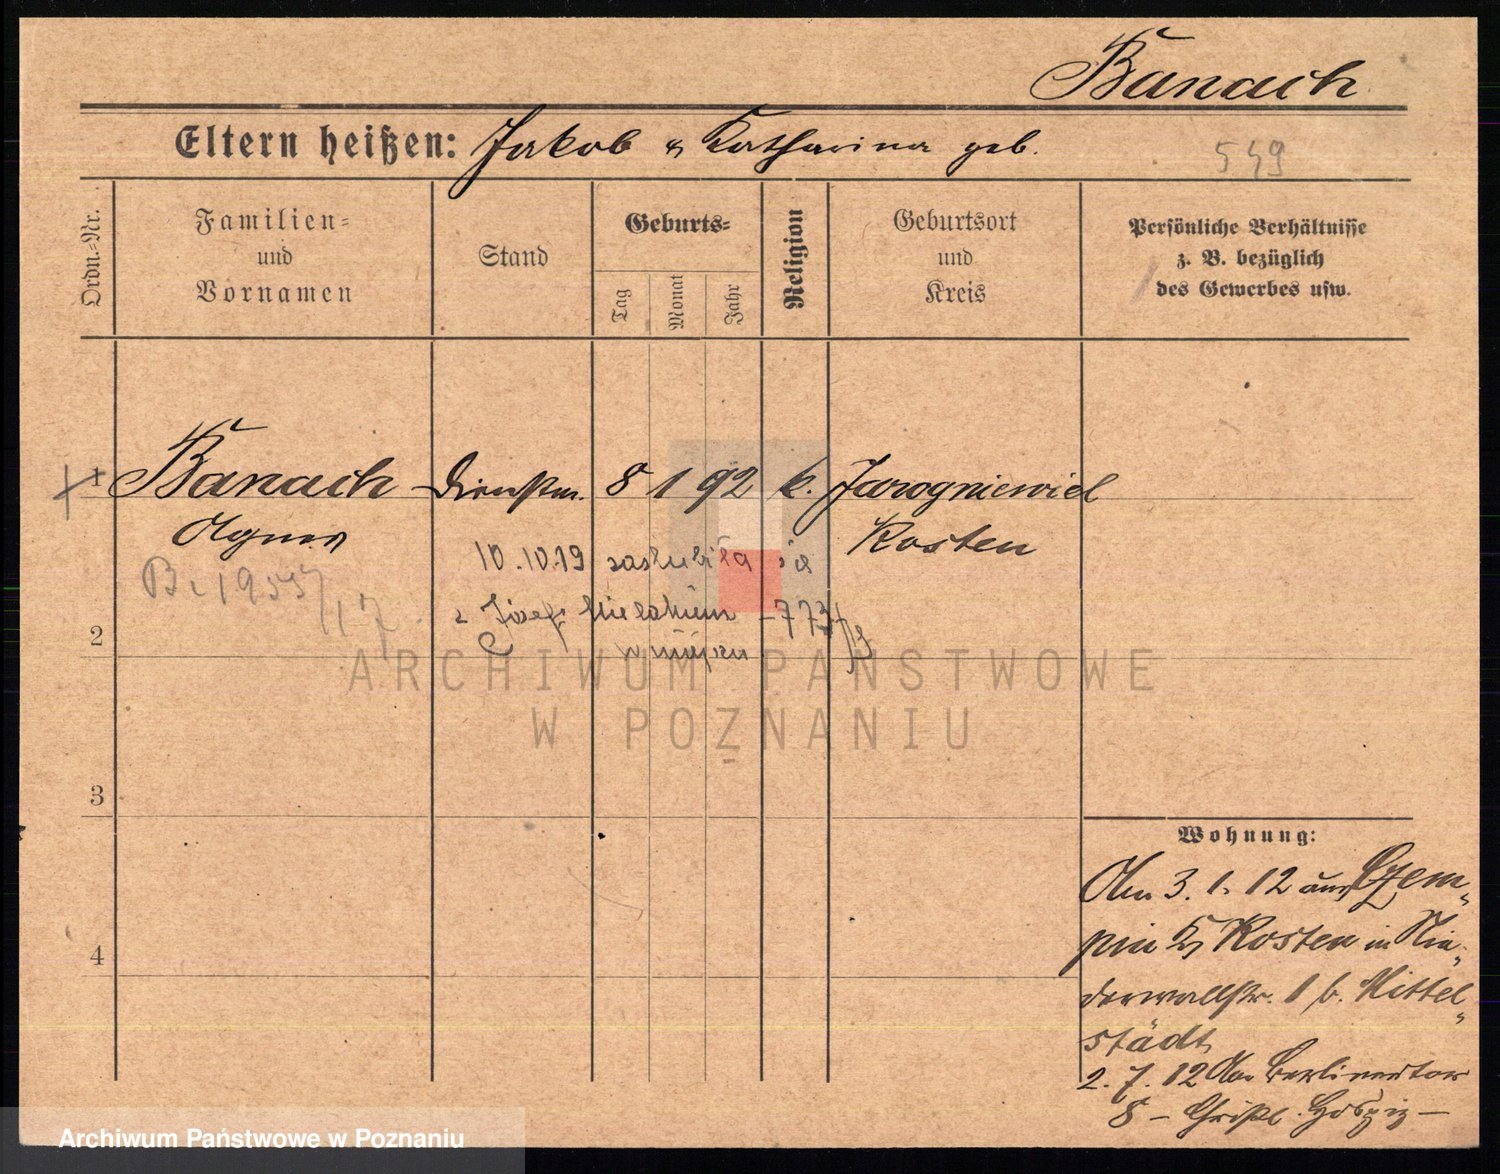 Banach
Eltern heißen: Jakob u Katharina geb.
549
Ordn.=Nr.
Familien=
und
Vornamen
Stand
Geburts=
Tag
Monat
Jahr
Religion
Geburtsort
und
Kreis
Persönliche Verhältnisse
z. B. bezüglich
des Gewerbes usw.
1 Banach Dienstm. 8 1 92 k. Jarogniewici
Agnes Kosten
10.10.19 zaślubiła się
z Józef
2
ARCHIWUM PAŃSTWOWE
W POZNANIU
3
4
Wohnung:
Am 3. 1. 12 aus Czem„
pin Kr Kosten in Nie„
derwallstr. 1 b. Mittel„
städt
2. 7. 12 Am Berlinertor
8 – Christl. Hospiz –
Archiwum Państwowe w Poznaniu